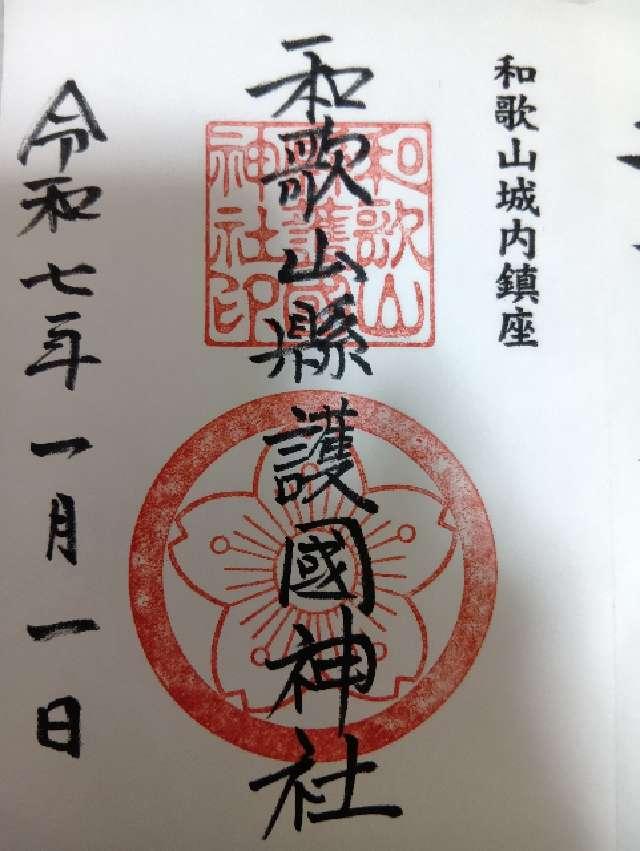 和歌山城内鎮座
和歌山縣護國神社
和歌山
縣護國
神社印
令和七年一月一日